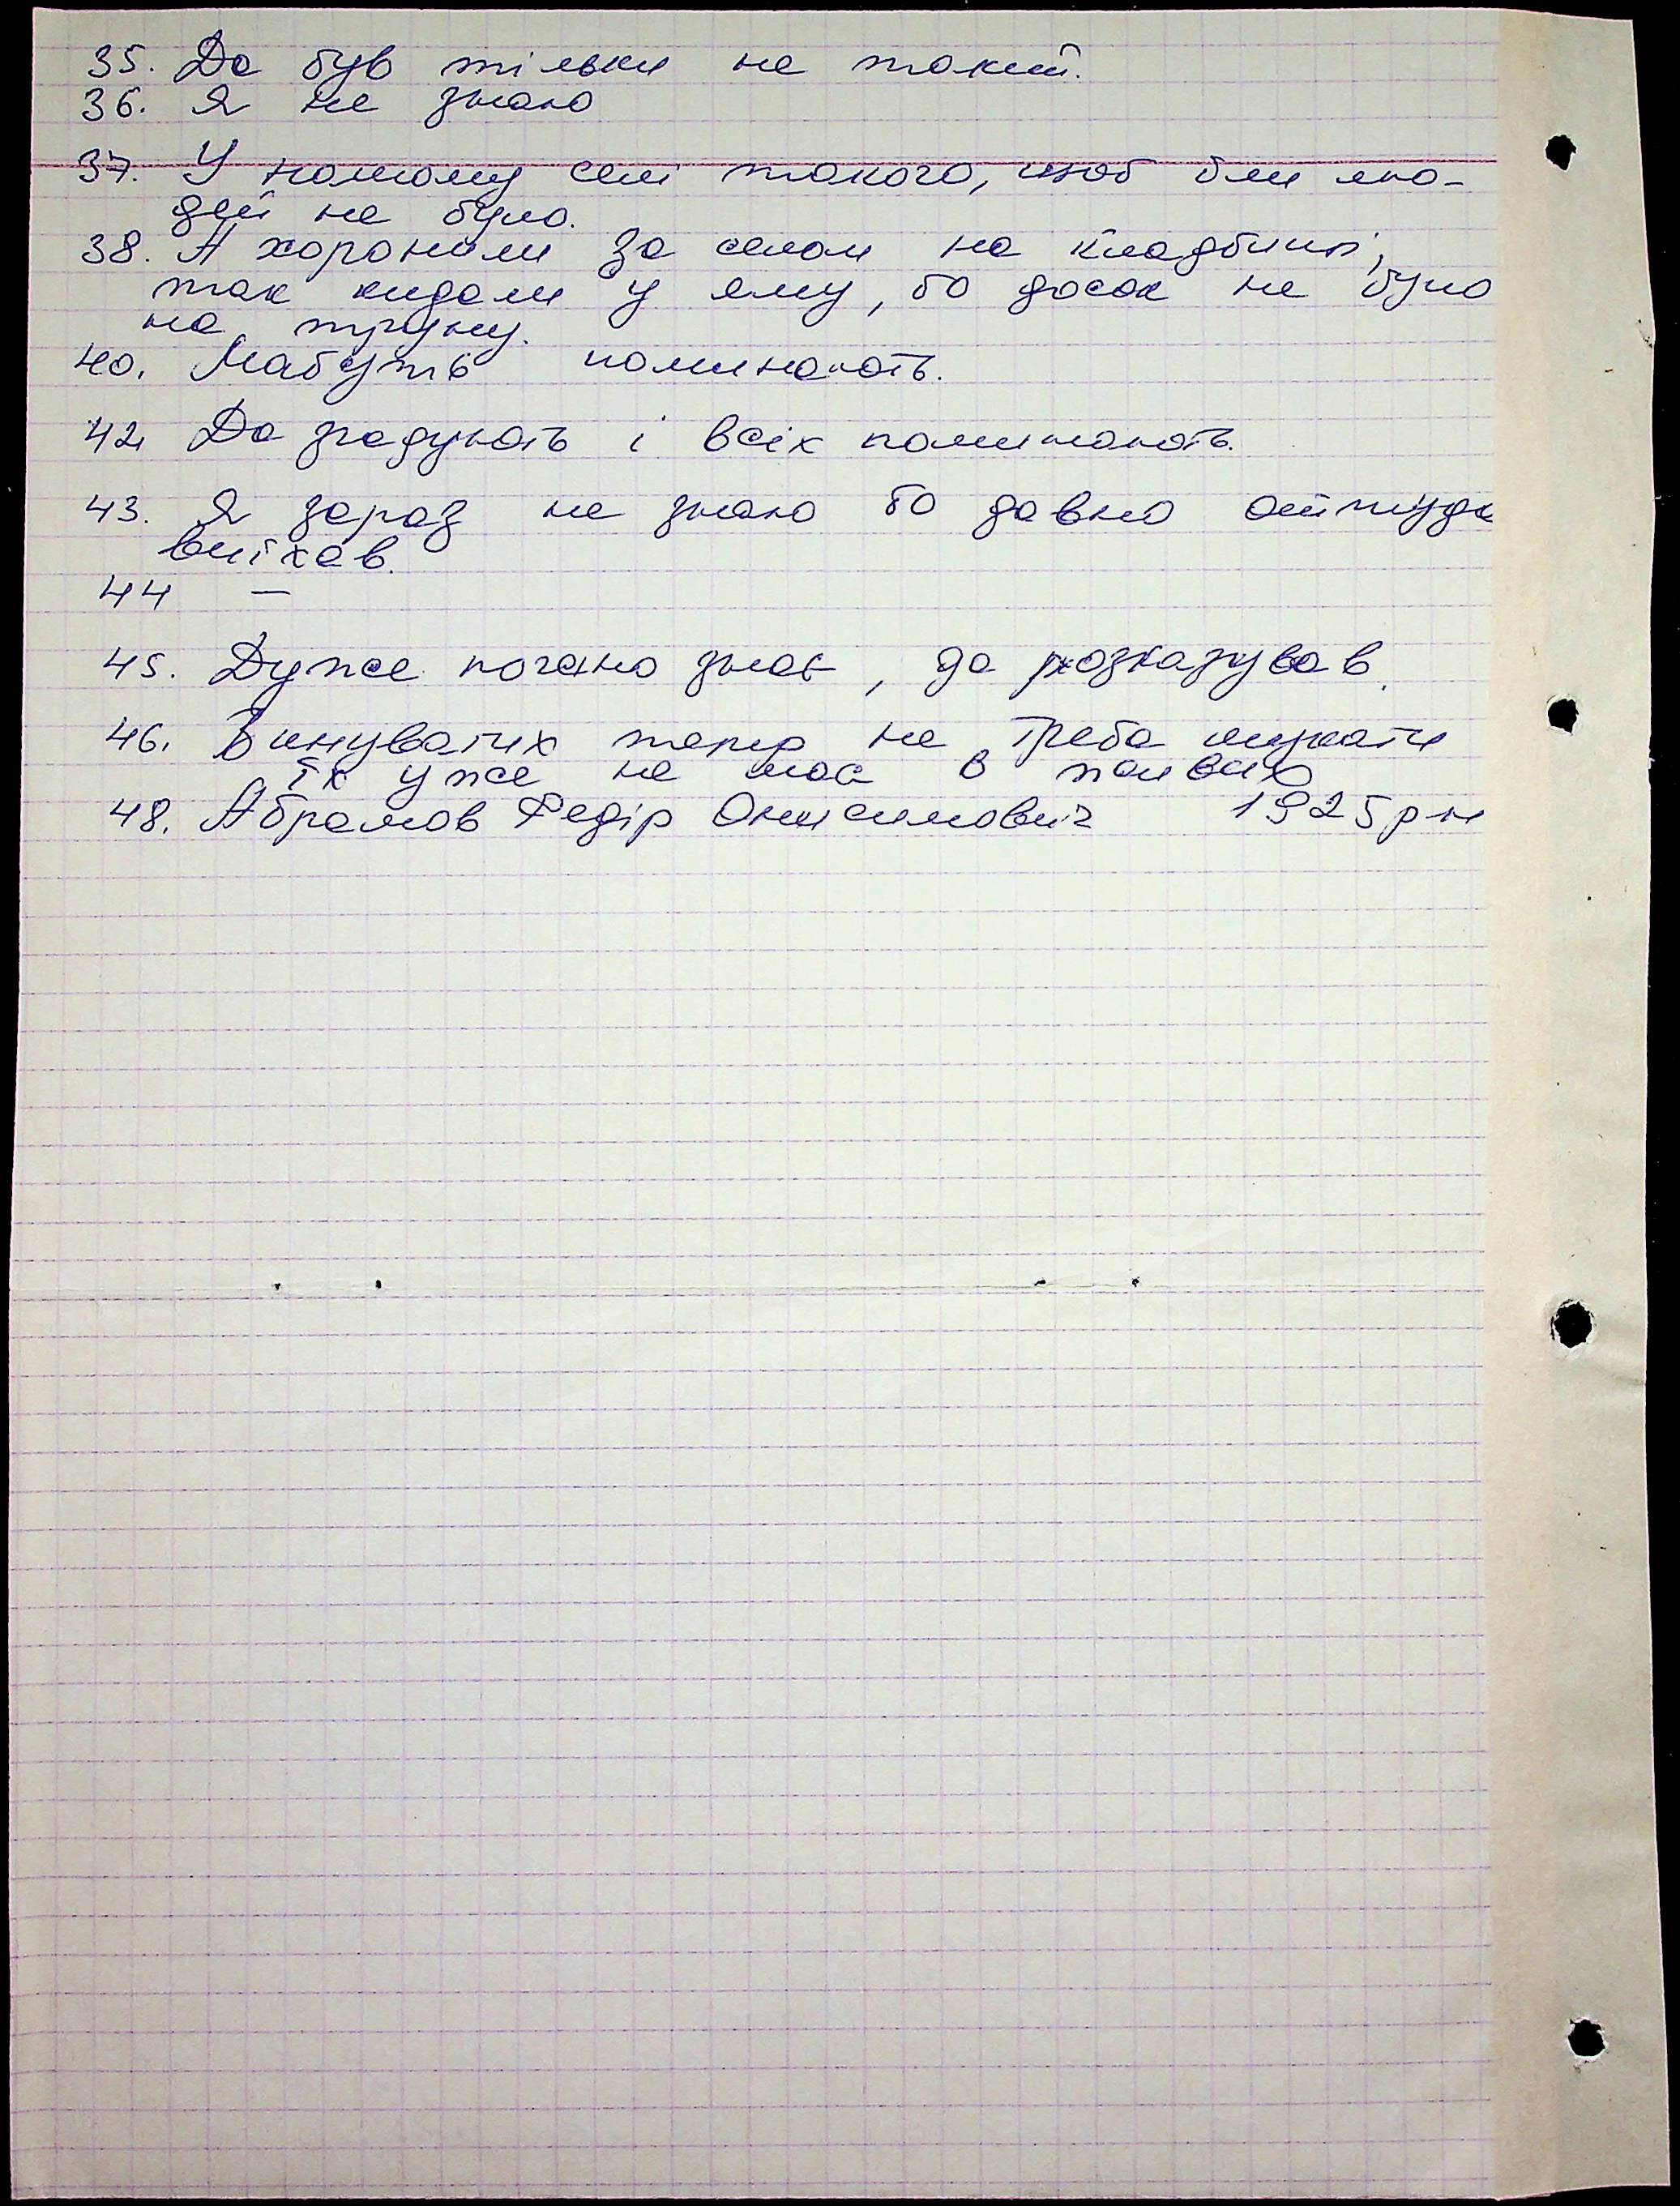 35. Да був тільки не такий.
36. Я не знаю
37. У нашому селі такого, щоб їли лю-
дей не було.
38. А хоронили за селом на кладбищі,
так кидали у яму, бо досок не було
на труну.
40. Мабуть поминають.
42 Да згадують і всіх поминають.
43. Я зараз не знаю бо давно оттуда
виїхав.
44 —
45. Дуже погано знає, да розказував.
46. Винуватих тепер не треба шукати
їх уже не має в живих
48. Абрамов Федір Онисимович 1925 р н